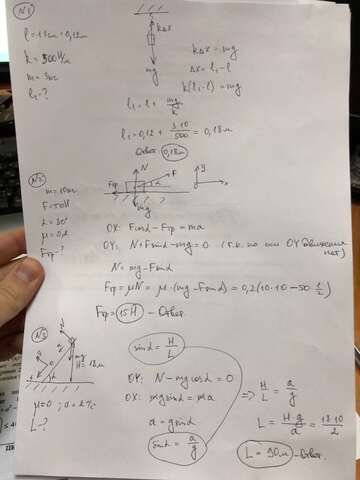 N1
l = 12см = 0,12м
k = 500 Н/м
m = 3кг
l₁ - ?
kΔx
mg
kΔx = mg
Δx = l₁ - l
k(l₁ - l) = mg
l₁ = l + mg/k
l₁ = 0,12 + 3·10/500 = 0,18м
Ответ: 0,18м
N2
m = 10кг
α = 30°
μ = 0,2
Fтр - ?
N
F
Fтр
α
mg
y
x
OX: Fcosα - Fтр = ma
OY: N + Fsinα - mg = 0 (т.к. по оси OY движения нет)
N = mg - Fsinα
Fтр = μN = μ·(mg - Fsinα) = 0,2(10·10 - 50·1/2)
Fтр = 15Н - Ответ.
N3
mg
H = 18м
α
μ = 0
L - ?
sinα = H/L
OY: N - mgcosα = 0
OX: mgsinα = ma
a = gsinα
sinα = a/g
=> H/L = a/g
L = H·g/a = 18·10/2
L = 90м - Ответ.